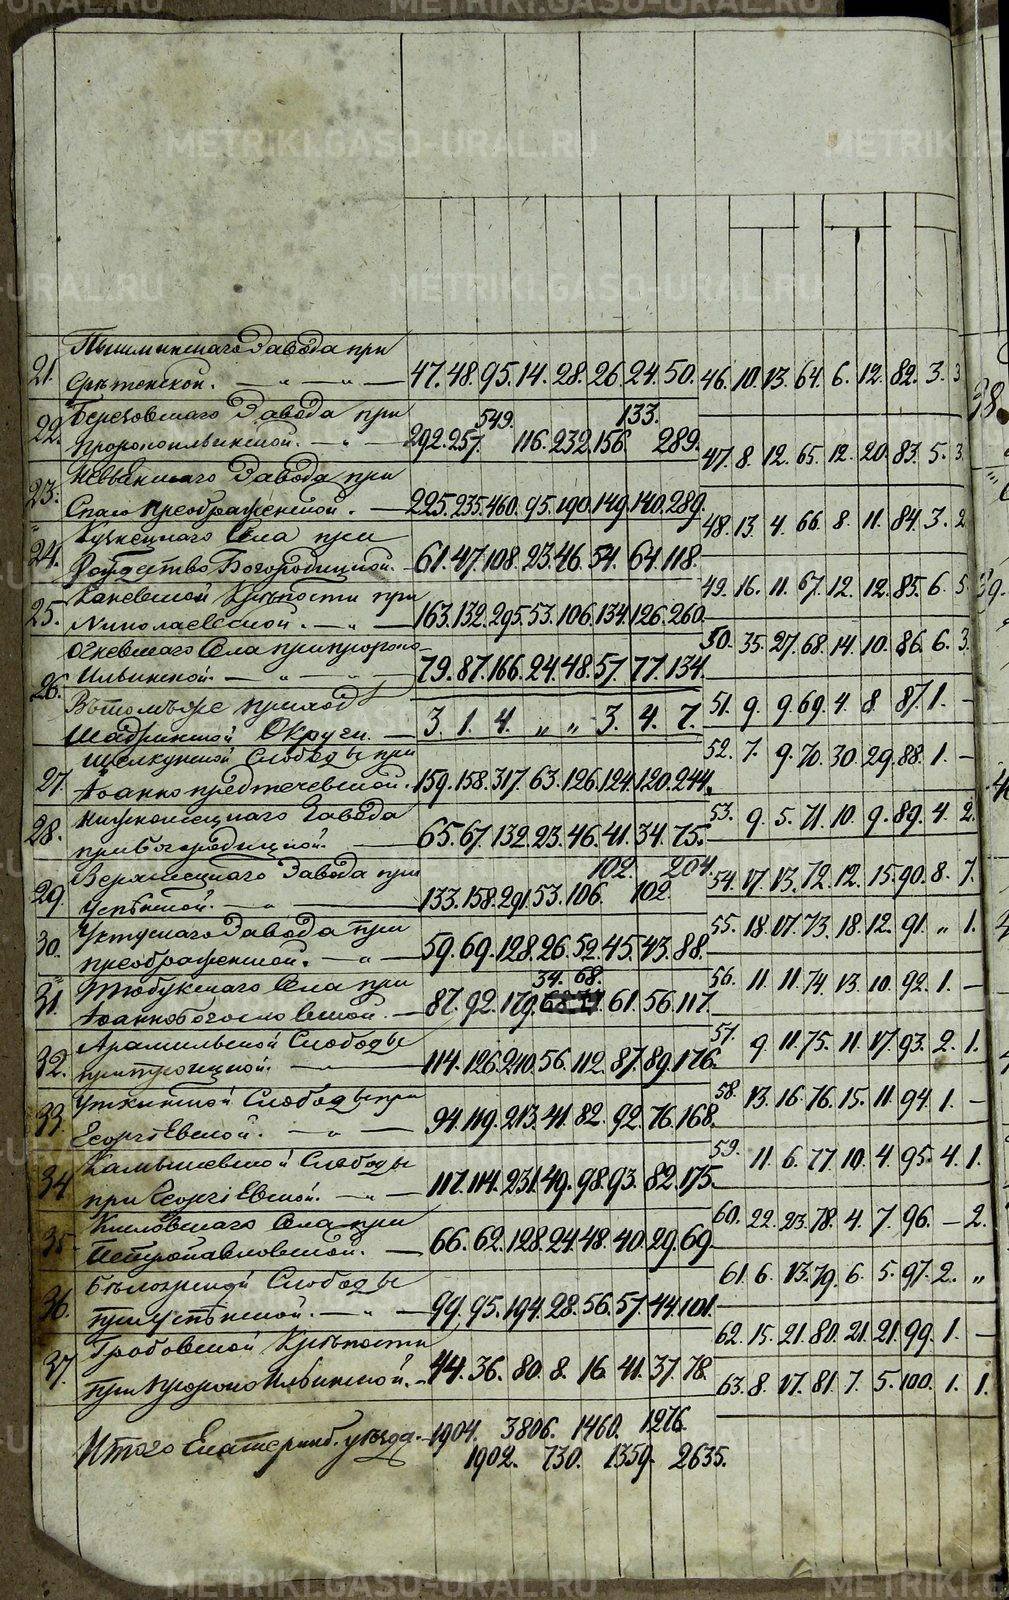 METRIKI.GASO-URAL.RU
21. Пышминскаго Завода при
Срѣтенской. — „ — „ — 47. 48. 95. 14. 28. 26. 24. 50. 46. 10. 13. 64. 6. 12. 82. 3. 3
22. Березовскаго Завода при 549. 133.
Пророкоильинской. — „ — 292. 257. 116. 232. 156. 289. 47. 8. 12. 65. 12. 20. 83. 5. 3.
23. Невьянскаго Завода при
Спасо Преображенской. — 225. 235. 460. 95. 190. 149. 140. 289. 48. 13. 4. 66. 8. 11. 84. 3. 2
24. Села при
Рождество Богородицкой. — 61. 47. 108. 23. 46. 54. 64. 118. 49. 16. 11. 67. 12. 12. 85. 6. 5.
25. Крѣпости при
Николаевской. — „ — 163. 132. 295. 53. 106. 134. 126. 260. 50. 35. 27. 68. 14. 10. 86. 6. 3.
26. Огневскаго Села при пророко
Ильинской. — „ — „ — 79. 87. 166. 24. 48. 57. 77. 134.
Въ томъ же приходѣ
Шадринской Округи. — 3. 1. 4. „ „ 3. 4. 7. 51. 9. 9. 69. 4. 8. 87. 1. —
27. Щелкунской Слободы при
Іоанно предтечевской. 159. 158. 317. 63. 126. 124. 120. 244. 52. 7. 9. 70. 30. 29. 88. 1. —
28. Завода
при богородицкой. — 65. 67. 132. 23. 46. 41. 34. 75. 53. 9. 5. 71. 10. 9. 89. 4. 2.
29. Завода при 102. 204.
Успенской. — „ — 133. 158. 291. 53. 106. 102. 54. 17. 13. 72. 12. 15. 90. 8. 7.
30. Уктускаго Завода при
преображенской. — „ — 59. 69. 128. 26. 52. 45. 43. 88. 55. 18. 17. 73. 18. 12. 91. „ 1.
31. Тюбукскаго Села при 34. 68.
Іоаннобогословской. — 87. 92. 179. 61. 56. 117. 56. 11. 11. 74. 13. 10. 92. 1. —
32. Арамильской Слободы
притроицкой. — „ — 114. 126. 240. 56. 112. 87. 89. 176. 57. 9. 11. 75. 11. 17. 93. 2. 1.
33. Уткинской Слободы при
Георгіевской. — „ — 94. 119. 213. 41. 82. 92. 76. 168. 58. 13. 16. 76. 15. 11. 94. 1. —
34. Камышевской Слободы
при Георгіевской. — „ — 117. 114. 231. 49. 98. 93. 82. 175. 59. 11. 6. 77. 10. 4. 95. 4. 1.
35. Кисловскаго Села при
Петропавловской. — 66. 62. 128. 24. 48. 40. 29. 69. 60. 22. 23. 78. 4. 7. 96. — 2.
36. Слободы
— „ — 99. 95. 194. 28. 56. 57. 44. 101. 61. 6. 13. 79. 6. 5. 97. 2. „
37. Гробовской Крѣпости
62. 15. 21. 80. 21. 21. 99. 1. —
при пророко Ильинской. — 44. 36. 80. 8. 16. 41. 37. 78. 63. 8. 17. 81. 7. 5. 100. 1. 1.
Итого Екатеринб. уѣзда. — 1904. 3806. 1460. 1276.
1902. 730. 1359. 2635.